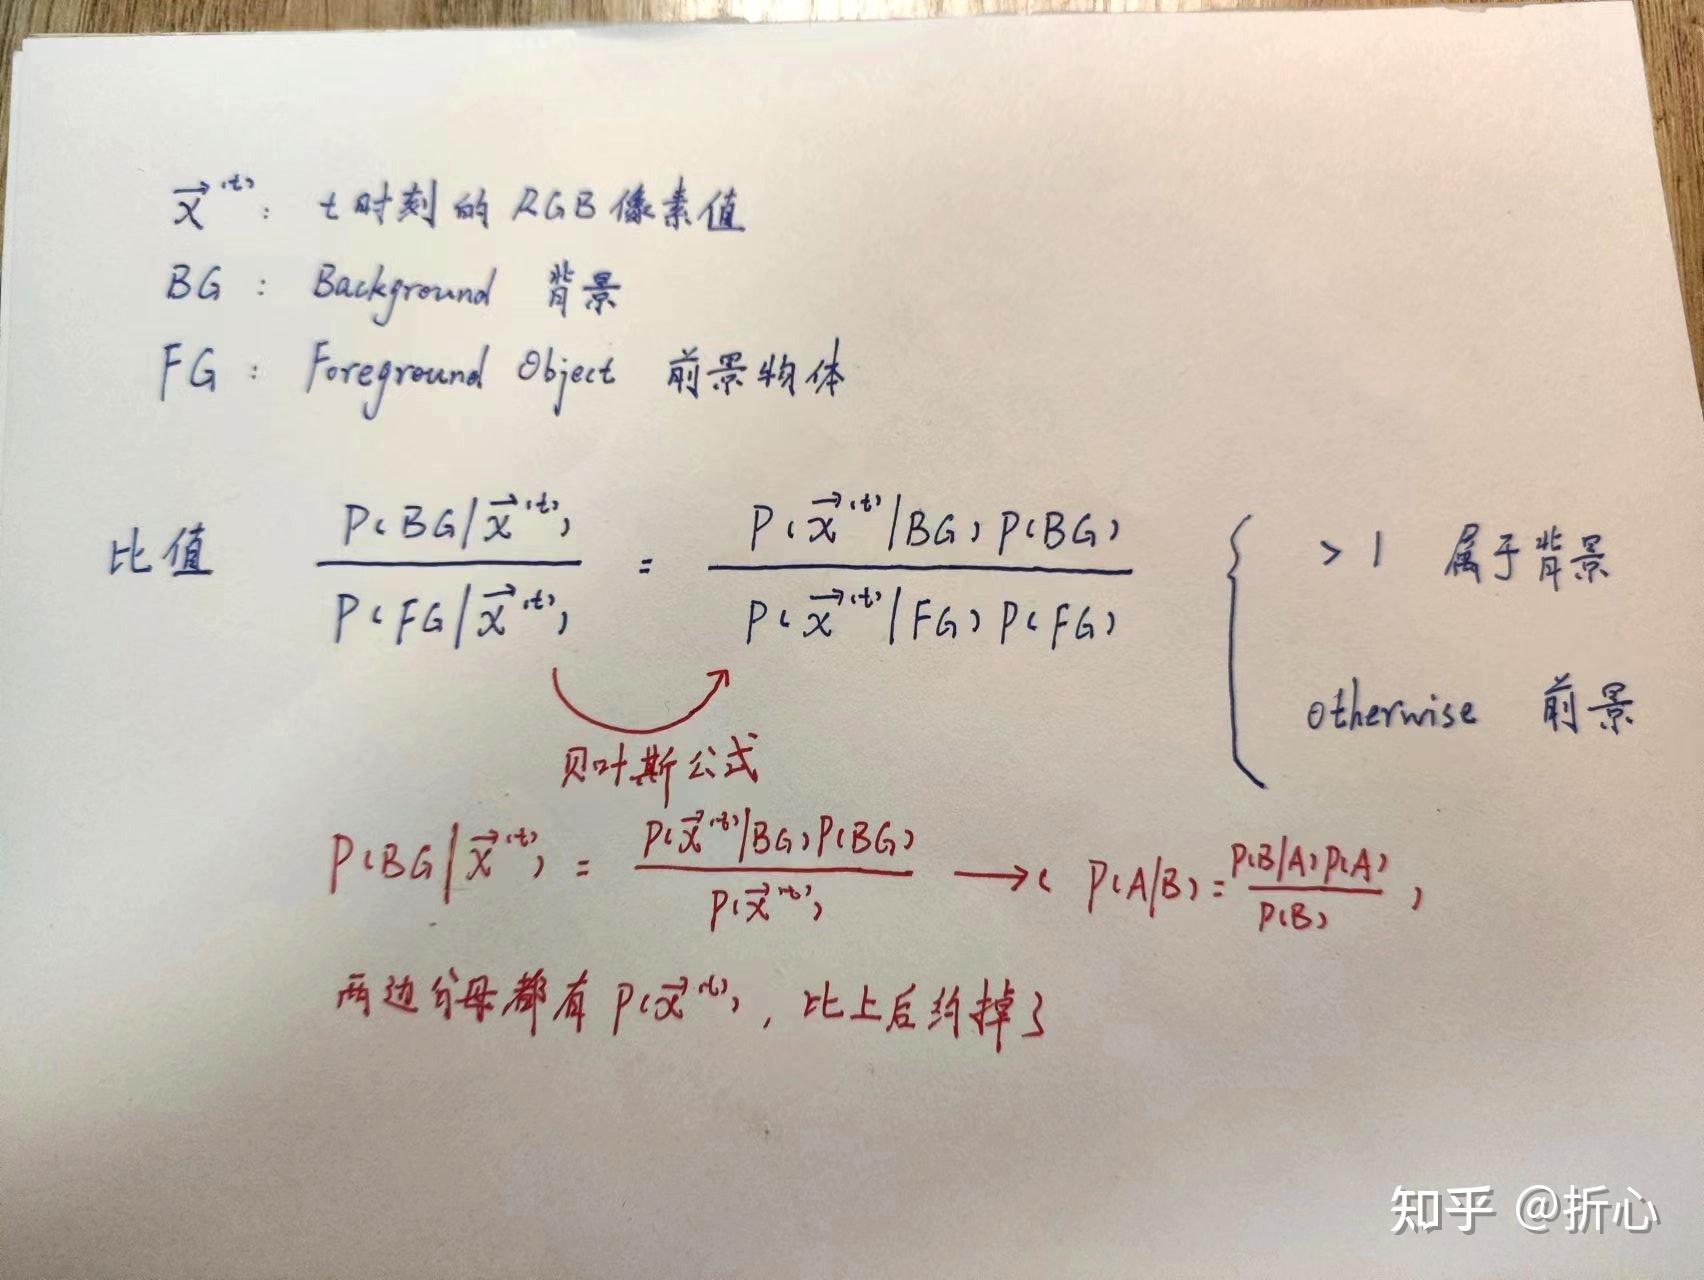 x⃗⁽ᵗ⁾: t时刻的RGB像素值
BG: Background 背景
FG: Foreground Object 前景物体
比值 P(BG|x⃗⁽ᵗ⁾) / P(FG|x⃗⁽ᵗ⁾) = P(x⃗⁽ᵗ⁾|BG)P(BG) / P(x⃗⁽ᵗ⁾|FG)P(FG) { >1 属于背景
otherwise 前景
贝叶斯公式
P(BG|x⃗⁽ᵗ⁾) = P(x⃗⁽ᵗ⁾|BG)P(BG) / P(x⃗⁽ᵗ⁾) → ( P(A|B) = P(B|A)P(A) / P(B) )
两边分母都有P(x⃗⁽ᵗ⁾), 比上后约掉了
知乎 @折心